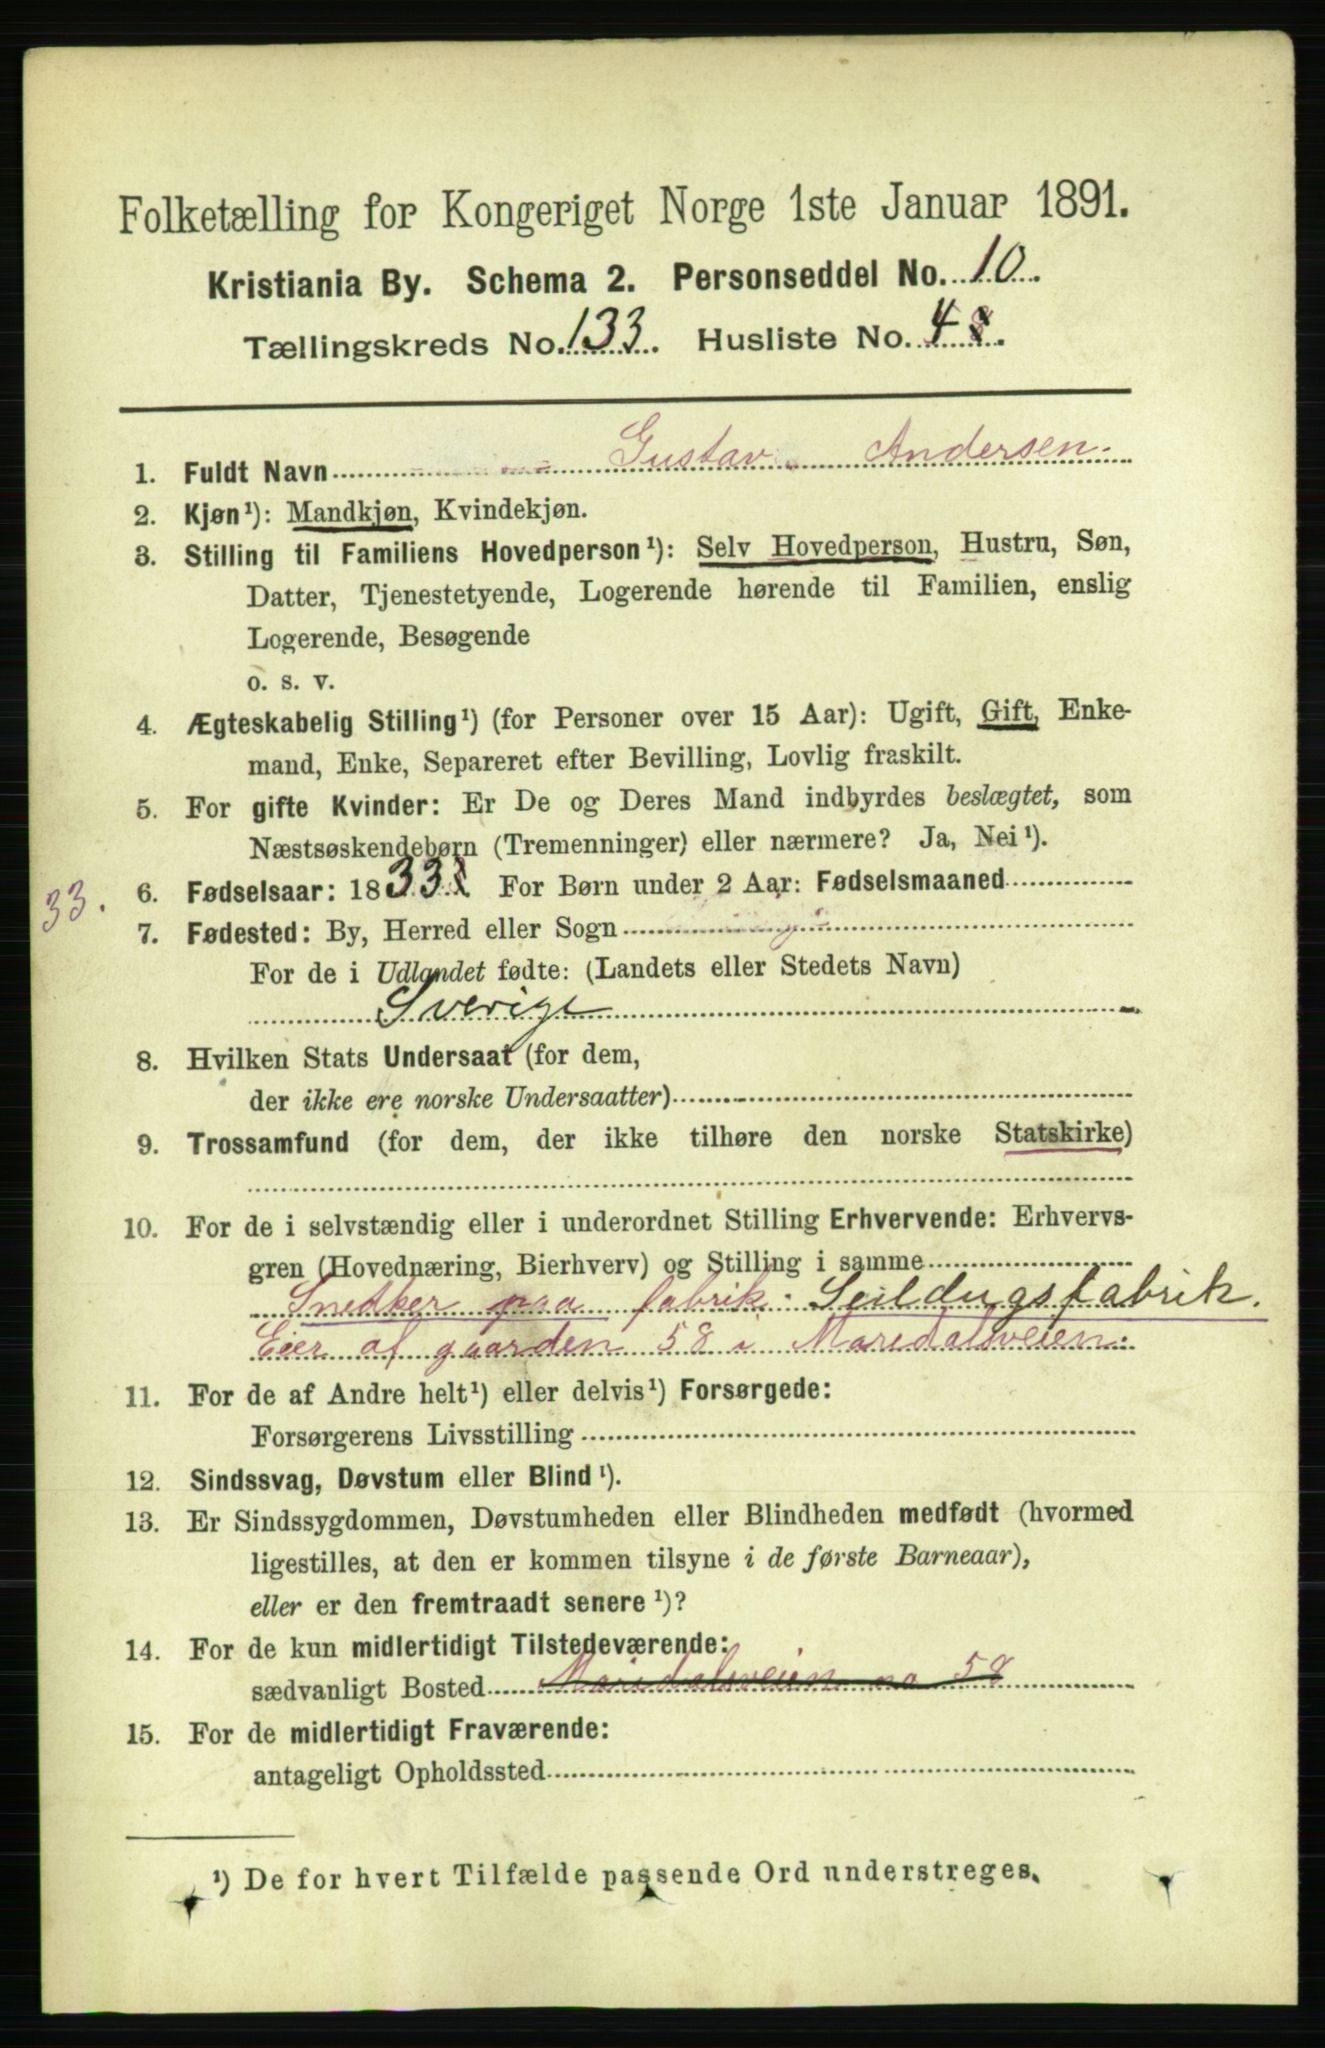 Folketælling for Kongeriget Norge 1ste Januar 1891.
Kristiania By. Schema 2. Personseddel No. 10.
Tællingskreds No. 133. Husliste No. 4
1. Fuldt Navn Gustav Andersen.
2. Kjøn¹): Mandkjøn, Kvindekjøn.
3. Stilling til Familiens Hovedperson¹): Selv Hovedperson, Hustru, Søn,
Datter, Tjenestetyende, Logerende hørende til Familien, enslig
Logerende, Besøgende
o. s. v.
4. Ægteskabelig Stilling¹) (for Personer over 15 Aar): Ugift, Gift, Enke-
mand, Enke, Separeret efter Bevilling, Lovlig fraskilt.
5. For gifte Kvinder: Er De og Deres Mand indbyrdes beslægtet, som
Næstsøskendebørn (Tremenninger) eller nærmere? Ja, Nei¹).
33.
6. Fødselsaar: 1833 For Børn under 2 Aar: Fødselsmaaned
7. Fødested: By, Herred eller Sogn
For de i Udlandet fødte: (Landets eller Stedets Navn)
Sverige
8. Hvilken Stats Undersaat (for dem,
der ikke ere norske Undersaatter)
9. Trossamfund (for dem, der ikke tilhøre den norske Statskirke)
10. For de i selvstændig eller i underordnet Stilling Erhvervende: Erhvervs-
gren (Hovednæring, Bierhverv) og Stilling i samme
Snedker paa fabrik. Seildugsfabrik.
Eier af gaarden 58 i Maredalsveien.
11. For de af Andre helt¹) eller delvis¹) Forsørgede:
Forsørgerens Livsstilling
12. Sindssvag, Døvstum eller Blind¹).
13. Er Sindssygdommen, Døvstumheden eller Blindheden medfødt (hvormed
ligestilles, at den er kommen tilsyne i de første Barneaar),
eller er den fremtraadt senere¹)?
14. For de kun midlertidigt Tilstedeværende:
sædvanligt Bosted Maridalsveien no 58
15. For de midlertidigt Fraværende:
antageligt Opholdssted
¹) De for hvert Tilfælde passende Ord understreges.